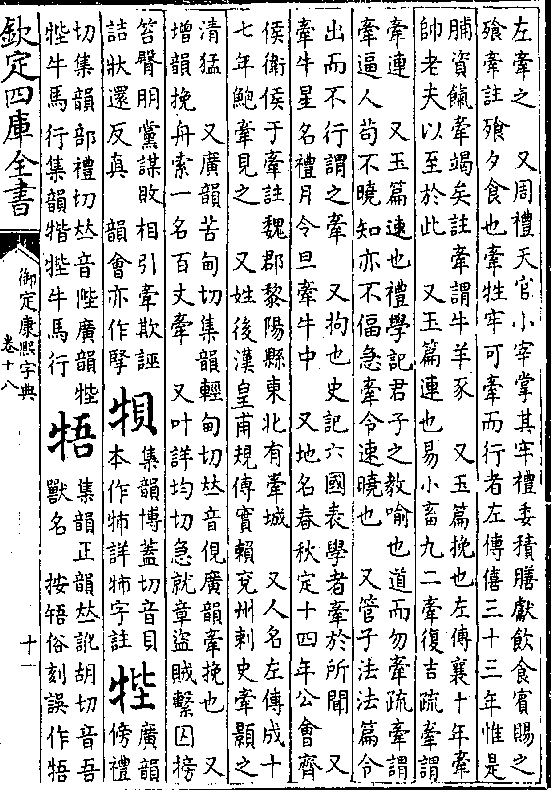 左牽之　又周禮天官小宰掌其牢禮委積膳獻飲食賓賜之
飱牽註飱夕食也牽牲牢可牽而行者左傳僖三十三年惟是
脯資餼牽竭矣註牽謂牛羊豕　又玉篇挽也左傳襄十年牽
帥老夫以至於此　又玉篇連也易小畜九二牽復吉疏牽謂
牽連　又玉篇速也禮學記君子之教喻也道而勿牽疏牽謂
牽逼人苟不曉知亦不偪急牽令速曉也　又管子法法篇令
出而不行謂之牽　又拘也史記六國表學者牽於所聞　又
牽牛星名禮月令旦牽牛中　又地名春秋定十四年公會齊
侯衛侯于牽註魏郡黎陽縣東北有牽城　又人名左傳成十
七年鮑牽見之　又姓後漢皇甫規傳實賴兗州刺史牽顥之
清猛　又廣韻苦甸切集韻輕甸切𠀤音俔廣韻牽挽也　又
增韻挽舟索一名百丈牽　又叶詳均切急就章盜賊繫囚搒
笞臀朋黨謀敗相引牽欺誣
詰狀還反真　韻會亦作掔
牬
集韻博蓋切音貝
本作㸬詳㸬字註
㹂
廣韻
傍禮
切集韻部禮切𠀤音陛廣韻㹂
㹂牛馬行集韻㸵㹂牛馬行
牾
集韻正韻𠀤訛胡切音吾
獸名　按㹳俗刻誤作牾
欽定四庫全書
御定康熙字典
卷十八
十一